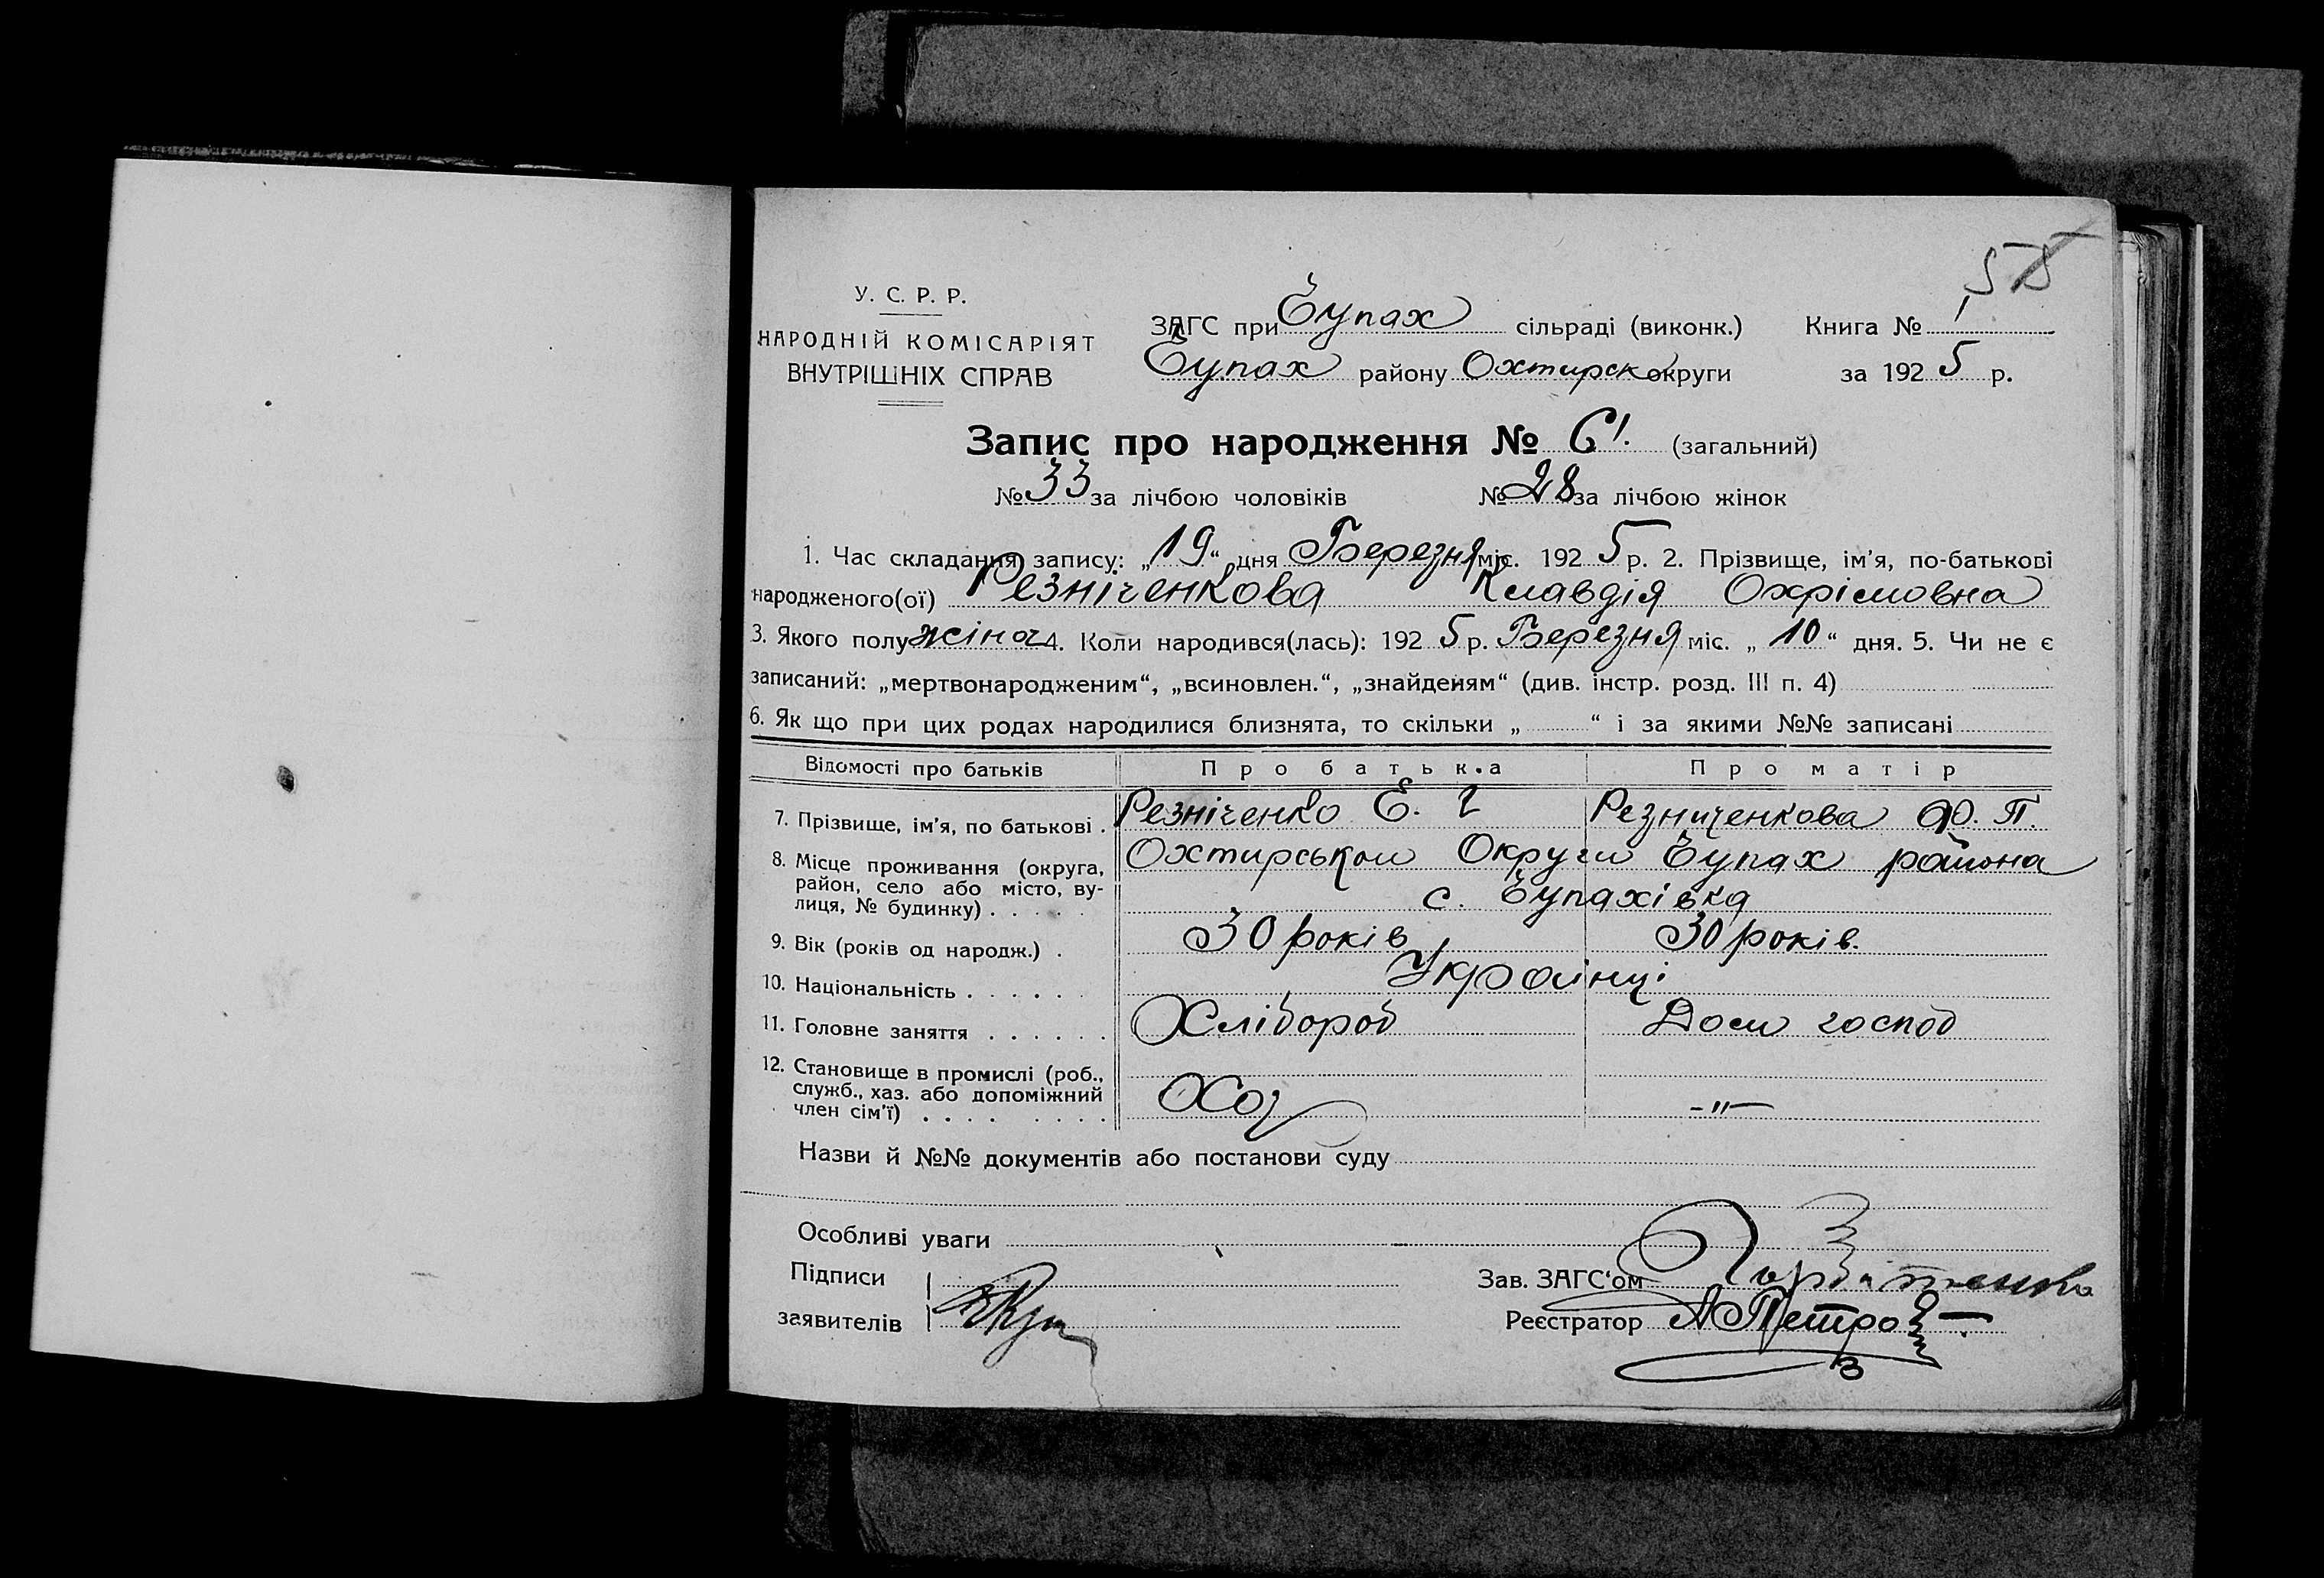 58
У. С. Р. Р.
НАРОДНІЙ КОМІСАРІЯТ
ВНУТРІШНІХ СПРАВ
ЗАГС при Чупах сільраді (виконк.) Книга № 1
Чупах району Охтирск округи за 1925 р.
Запис про народження № 61. (загальний)
№ 33 за лічбою чоловіків № 28 за лічбою жінок
1. Час складання запису: „19“ дня Березня міс. 1925 р. 2. Прізвище, ім’я, по-батькові
народженого(ої) Резніченкова Клавдія Охрімовна
3. Якого полу жіноч 4. Коли народився(лась): 1925 р. Березня міс. „10“ дня. 5. Чи не є
записаний: „мертвонародженим“, „всиновлен.“, „знайденям“ (див. інстр. розд. III п. 4)
6. Як що при цих родах народилися близнята, то скільки „ “ і за якими №№ записані
Відомості про батьків Про батька Про матір
7. Прізвище, ім’я, по батькові . Резніченко Е. Г Резниченкова Ф. П.
8. Місце проживання (округа, район, село або місто, ву-лиця, № будинку) . . . . . Охтирськои Округи Чупах района
с. Чупахівка
9. Вік (років од народж.) . 30 років 30 років.
10. Національність . . . . . . Украінці
11. Головне заняття . . . . . . Хлібороб Дом господ
12. Становище в промислі (роб., служб., хаз. або допоміжний член сім’ї) . . . . . . . . Хоз -"-
Назви й №№ документів або постанови суду
Особливі уваги
Підписи
заявителів
Зав. ЗАГС‘ом
Реєстратор АПетров